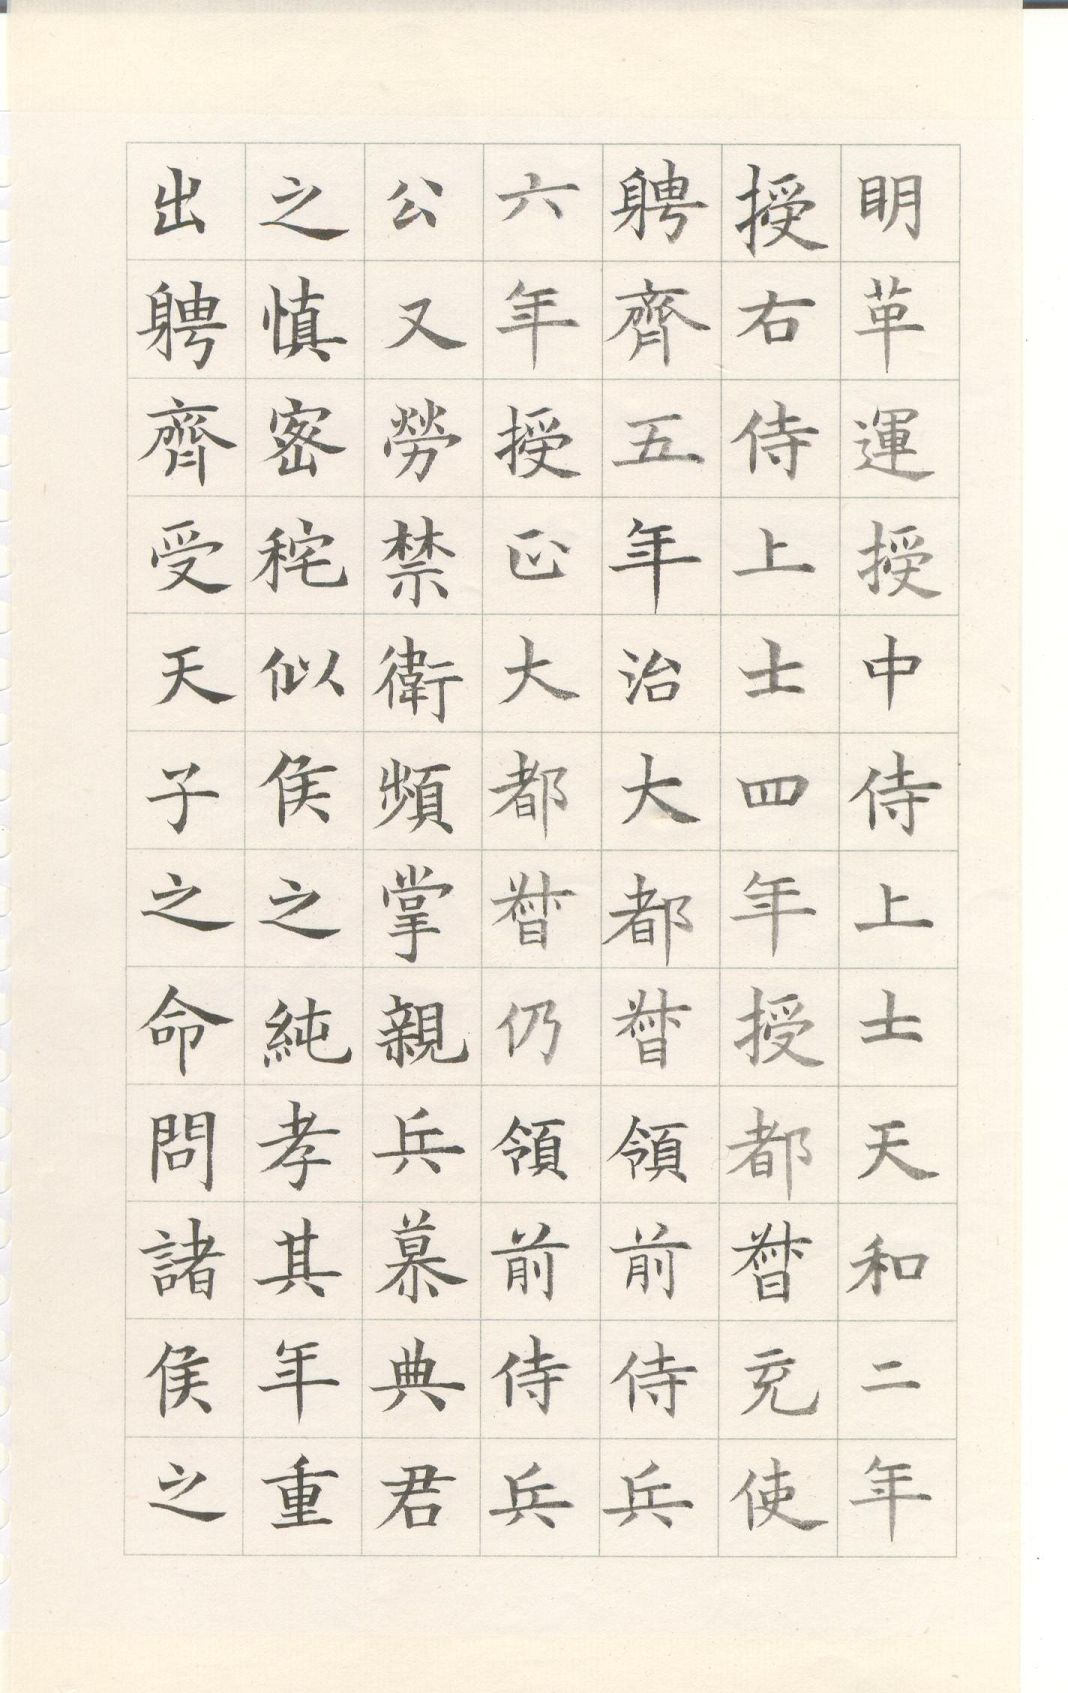 明革運授中侍上士天和二年
授右侍上士四年授都督充使
聘齊五年治大都督領前侍兵
六年授正大都督仍領前侍兵
公又勞禁衛頻掌親兵慕典君
之慎密秺似侯之純孝其年重
出聘齊受天子之命問諸侯之